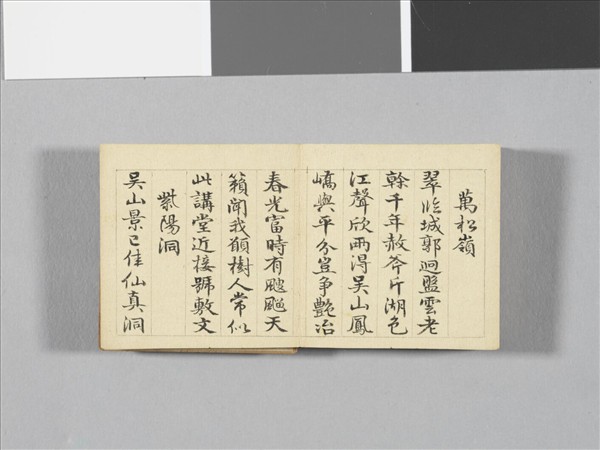 萬松嶺
翠臨城郭迥盤雲老
幹千年赦斧斤湖色
江聲欣兩得吳山鳳
嶠與平分豈爭艷冶
春光富時有颼飀天
籟聞我願樹人常似
此講堂近接號敷文
紫陽洞
吳山景已佳仙真洞